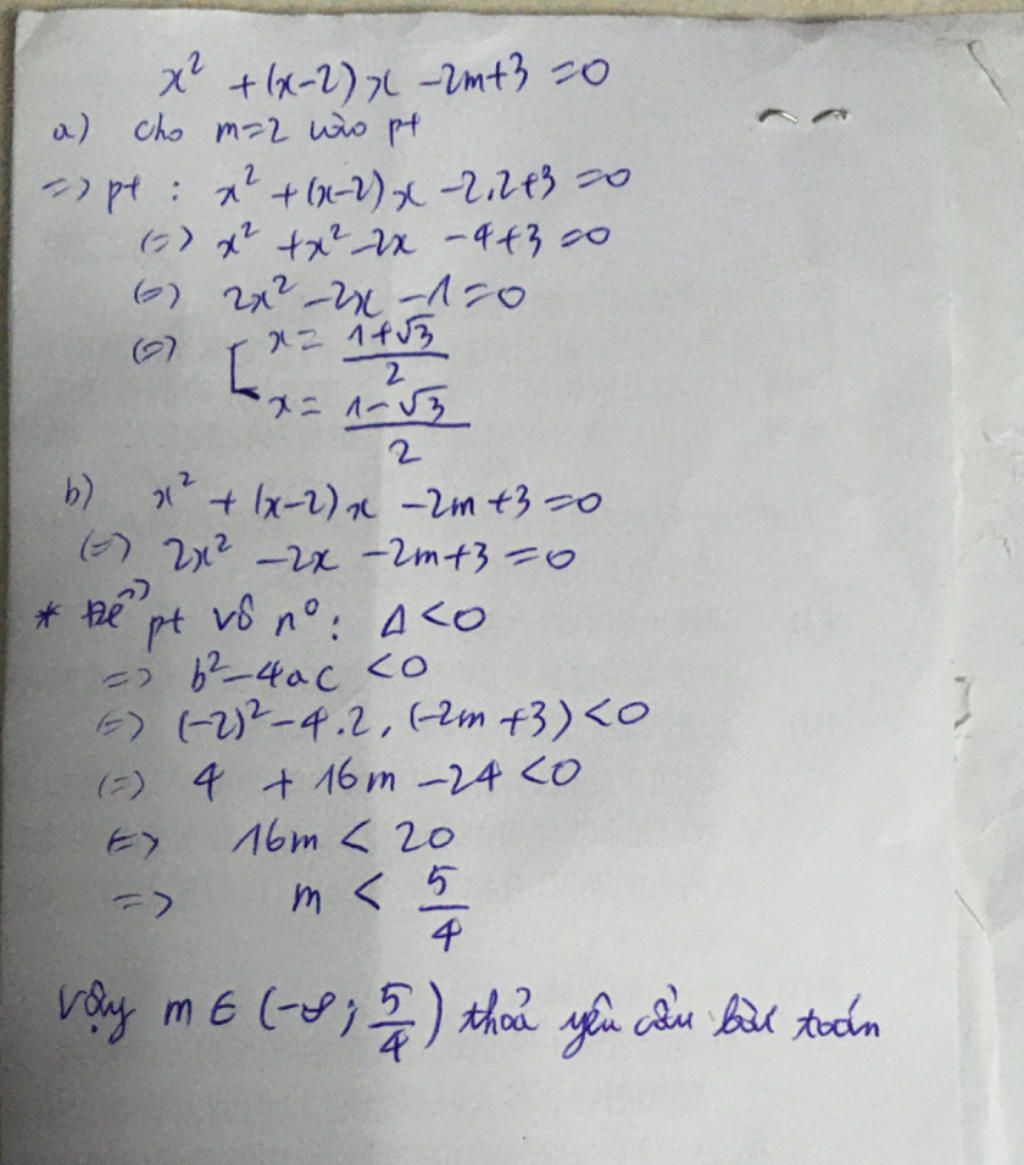 x² + (x-2)x - 2m+3 = 0
a) cho m=2 vào pt
=> pt : x² + (x-2)x - 2.2+3 = 0
(=) x² + x² - 2x - 4+3 = 0
(=) 2x² - 2x - 1 = 0
(=) [ x = (1+√3)/2
x = (1-√3)/2
b) x² + (x-2)x - 2m+3 = 0
(=) 2x² - 2x - 2m+3 = 0
* Để pt vô n°: Δ<0
=> b²-4ac <0
(=) (-2)² - 4.2.(-2m+3) <0
(=) 4 + 16m - 24 <0
(=) 16m < 20
=> m < 5/4
Vậy m ∈ (-∞; 5/4) thoả yêu cầu bài toán